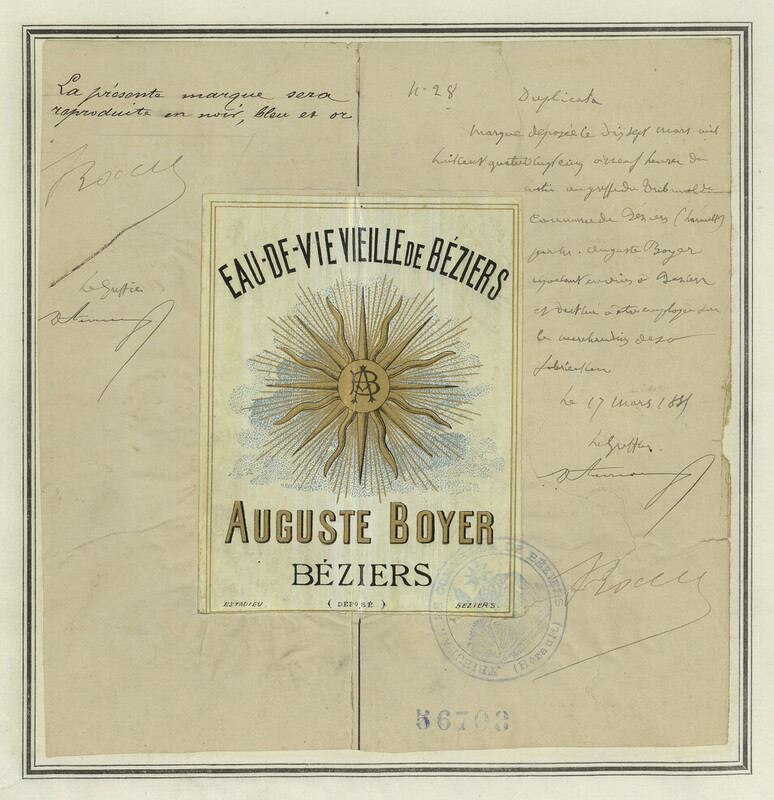 La présente marque sera
reproduite en noir, bleu et or
Le Greffier
N. 28
Duplicata
marque déposée le dix sept mars mil
huit cent quatre vingt cinq à neuf heures du
matin au greffe du Tribunal de
Commerce de Béziers (hérault)
par Mr. Auguste Boyer
négociant en vins à Béziers
et destinée à être employée sur
les marchandises de sa
fabrication
Le 17 mars 1885
Le Greffier
EAU-DE-VIE VIEILLE DE BÉZIERS
AB
AUGUSTE BOYER
BÉZIERS
ESTADIEU (DÉPOSÉ) BEZIERS.
TRIBUNAL DE COMMERCE DE BÉZIERS
(Hérault)
56703